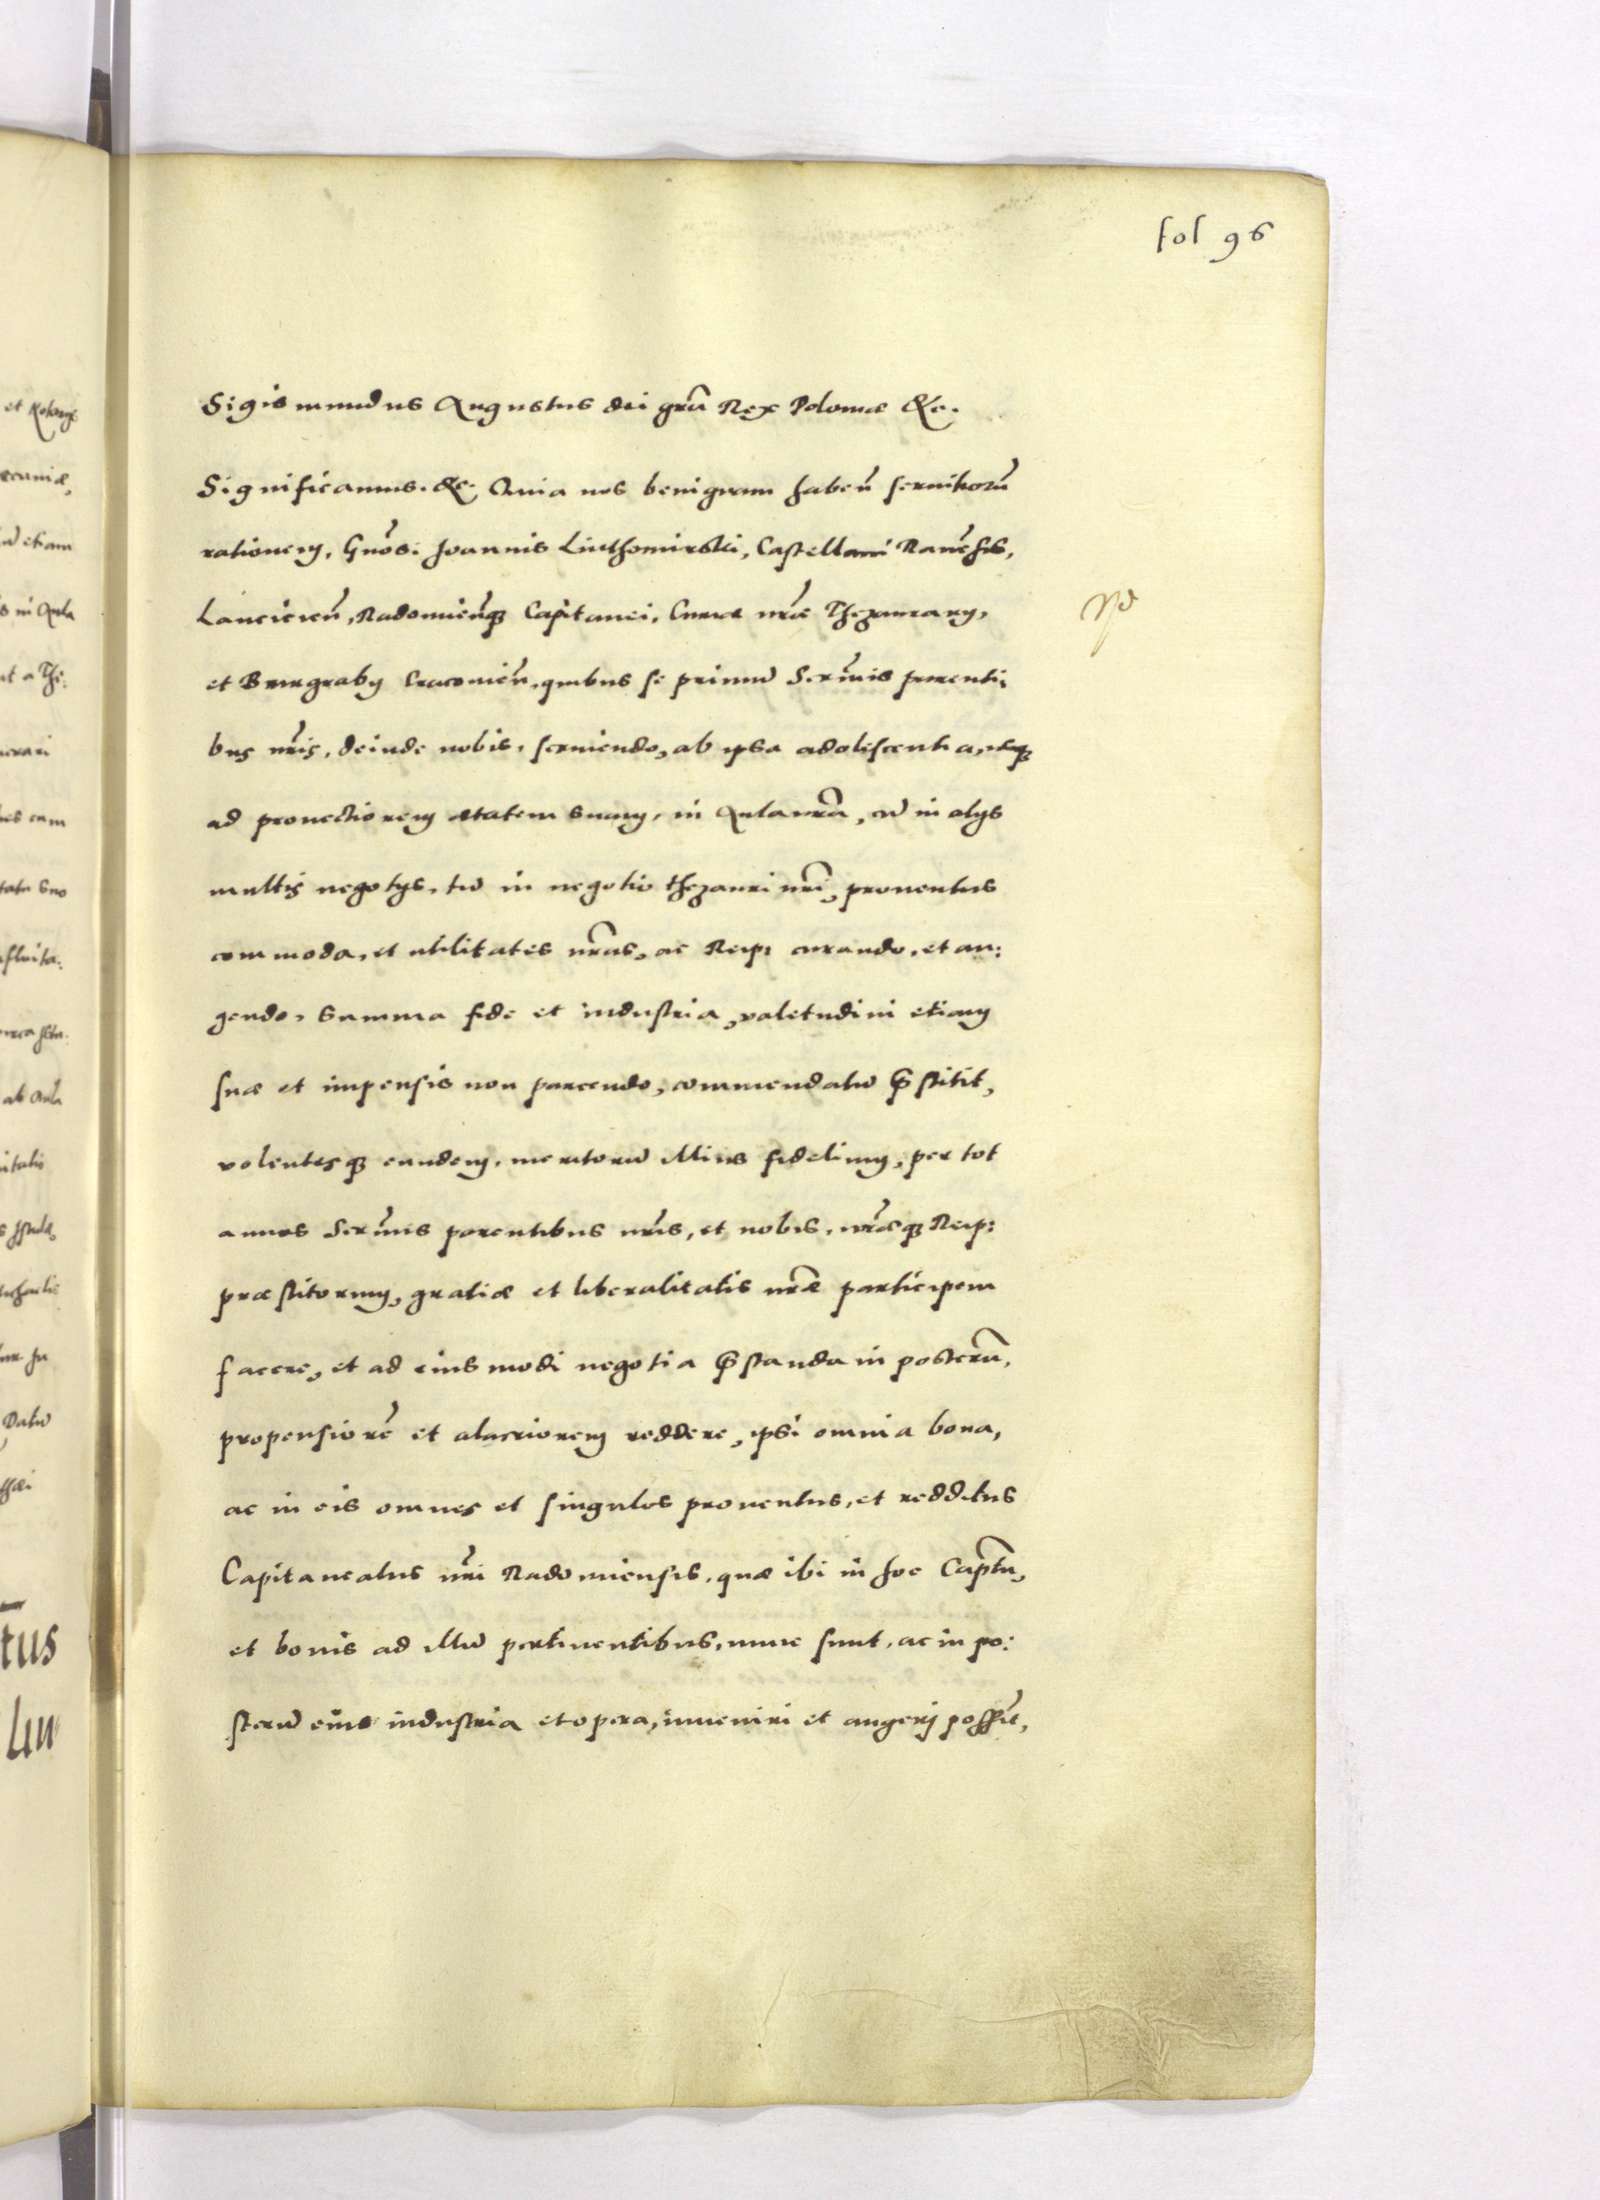 fol 96
Sigismundus Augustus dei grã Rex Poloniæ &c.
Significamus. &c. Quia nos benignam haben̄ seruitiorũ
rationem, Gñosi Joannis Luthomirskj, Castellani Raueñsis,
Lancicieñ, Radomieñq3 Capitanei, Curiæ nr̃æ Thezaurarij,
et Burgrabij Cracouieñ, quibus se primũ Serm̃is parenti:
bus nr̃is, deinde nobis, seruiendo, ab ipsa adolescentia, usq3
ad prouectiorem ætatem suam, in Aula nr̃a, cũ in alijs
multis negotijs, tũ in negotio thezauri nr̃i, prouentus
commoda, et utilitates nr̃as, ac Reip: curando, et au:
gendo, summa fide et industria, valetudini etiam
suæ et impensis non parcendo, commendatũ p̃stitit,
volentesq3 eundem, meritorũ illius fidelium, per tot
annos Serm̃is parentibus nr̃is, et nobis, nr̃æq3 Reip:
præstitorum, gratiæ et liberalitatis nr̃æ participem
facere, et ad eiusmodi negotia p̃standa in posterũ,
propensiorẽ et alacriorem reddere, ipsi omnia bona,
ac in eis omnes et singulos prouentus, et redditus
Capitaneatus nr̃i Radomiensis, quæ ibi in hoc Captũ,
et bonis ad illũ pertinentibus, nunc sunt, ac in po:
sterũ eius industria et opera, inueniri et augerj possẽt,